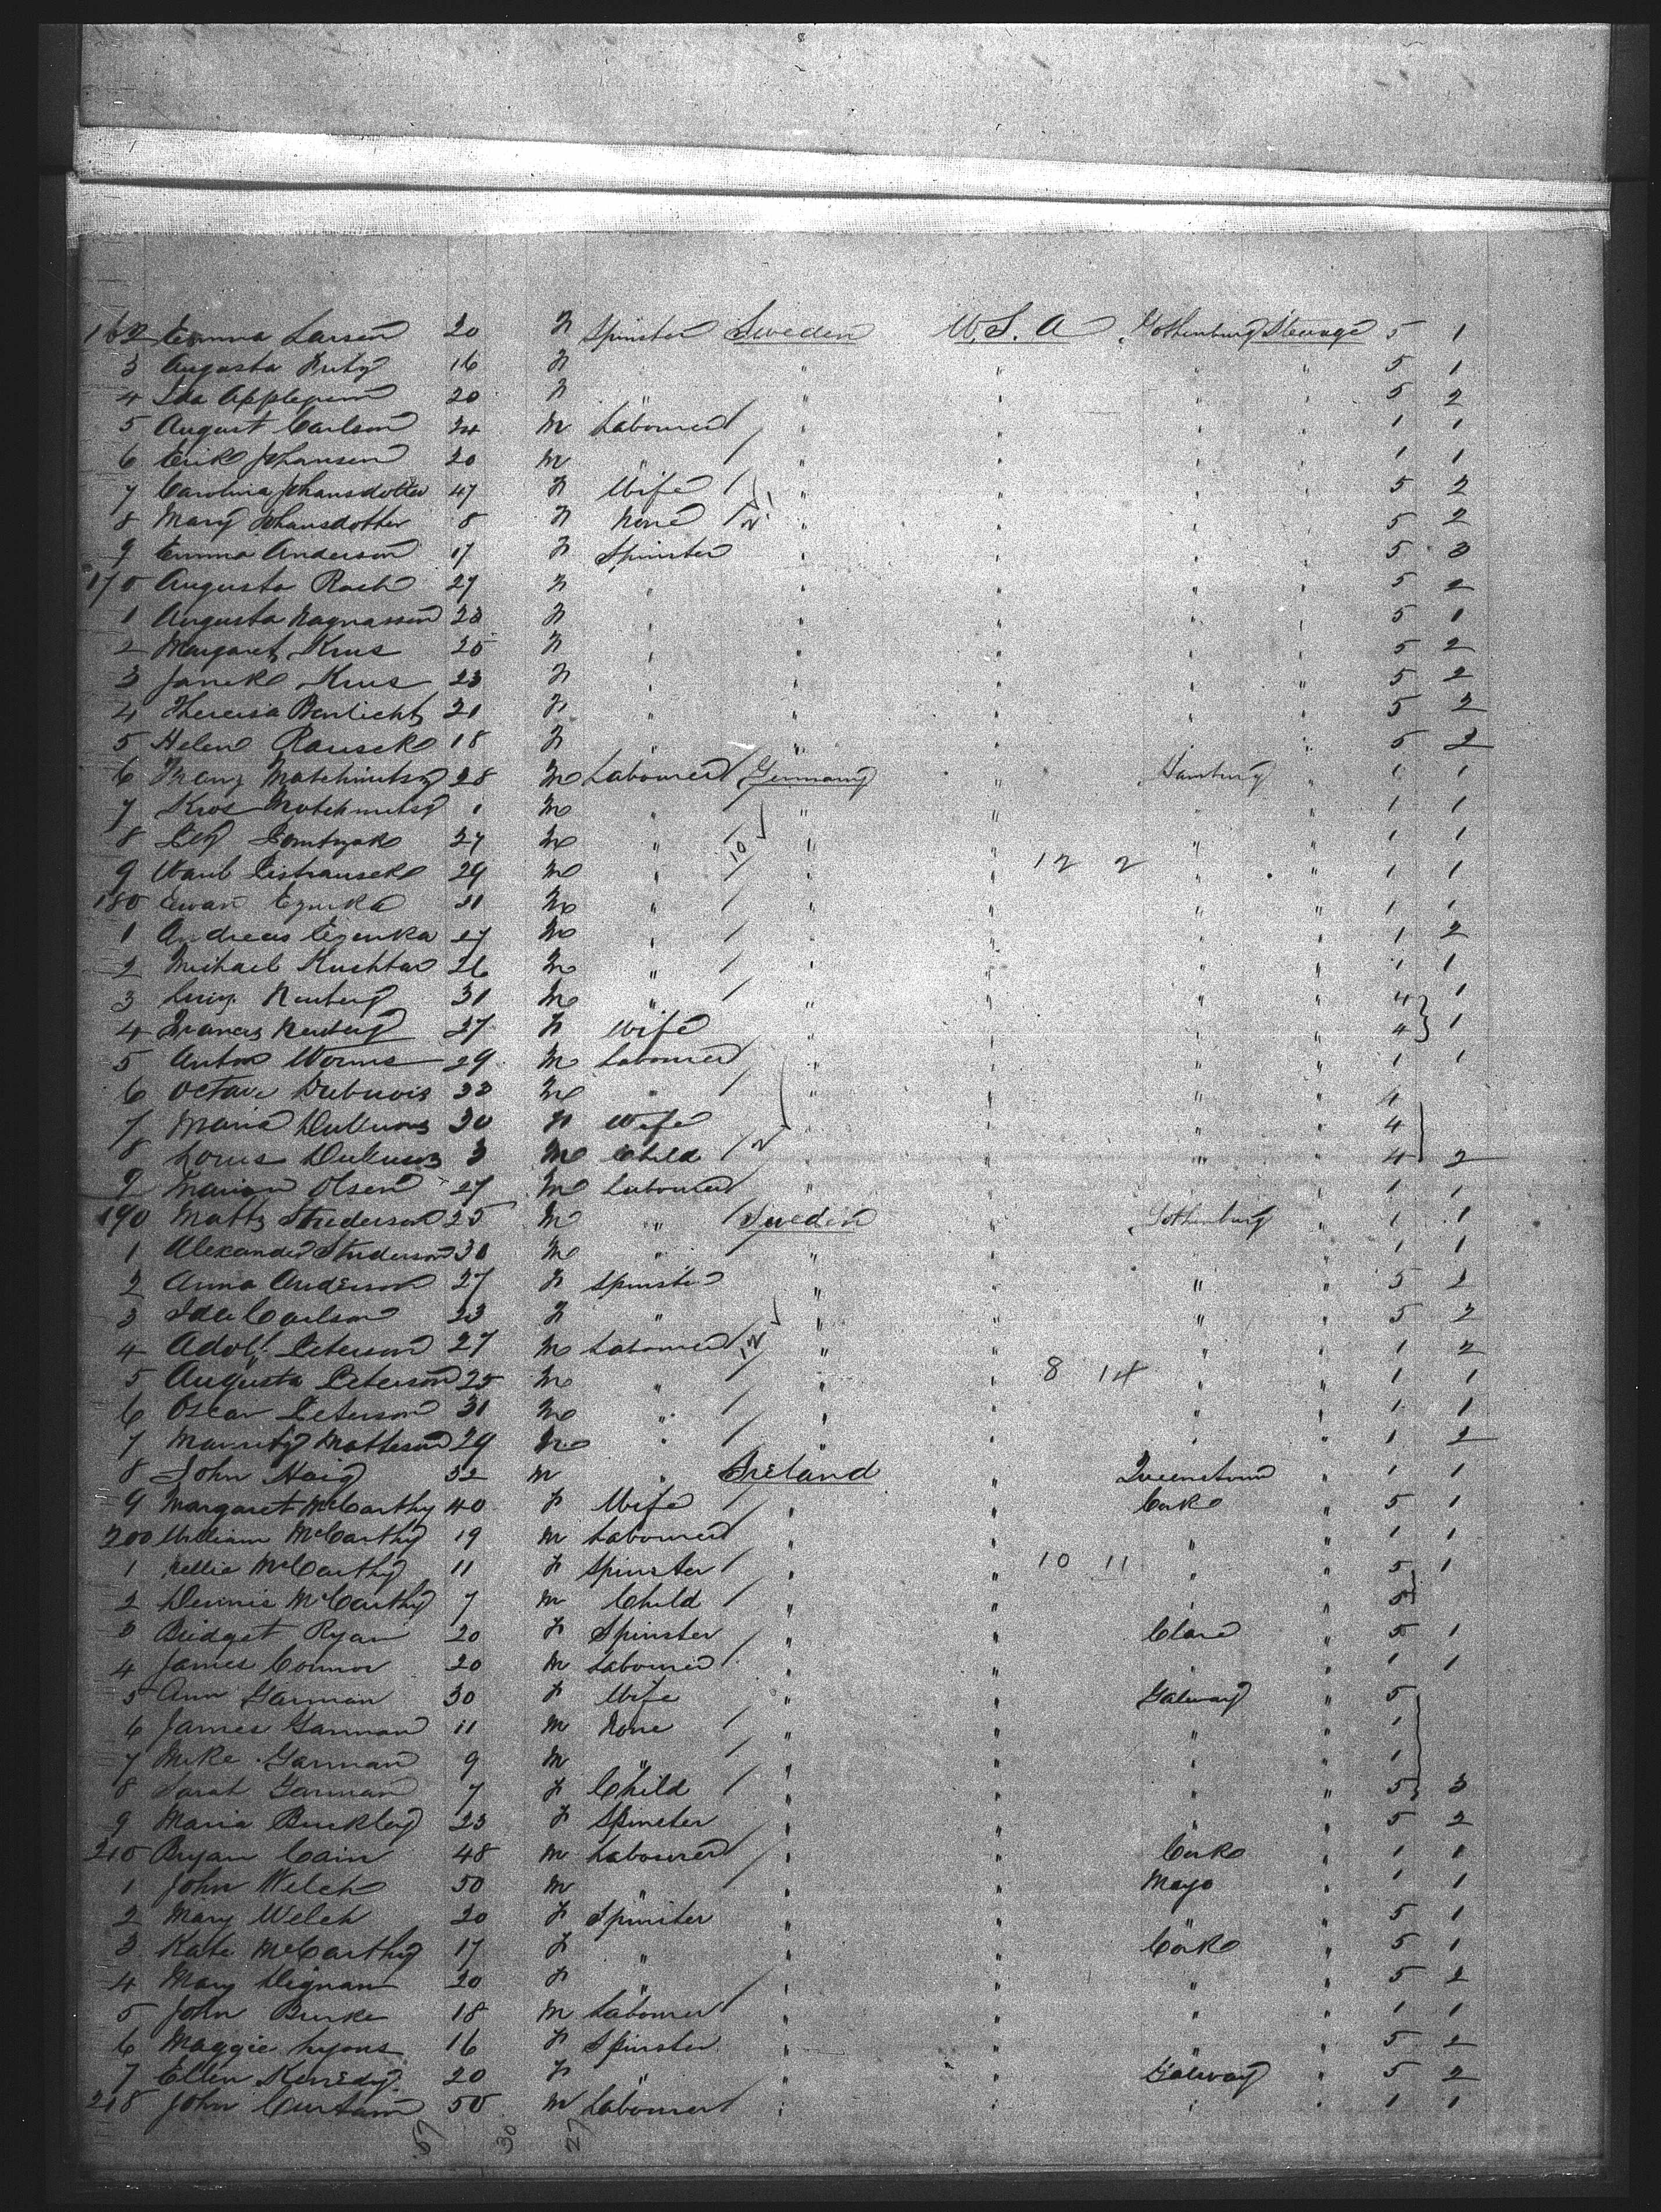 162 Emma Larsen 20 F Spinster Sweden U.S.A Gothenburg Steerage 5 1
3 Augusta 16 F " " " " 5 1
4 Ida 20 F " " " " " 5 2
5 August Carlson 24 M Labourer " " " " 1 1
6 Erik Johansen 20 M " " " " " 1 1
7 Carolina Johansdotter 47 F Wife " " " " 5 2
8 Mary Johansdotter 8 F None " " " " 5 2
9 Emma Anderson 17 F Spinster " " " " 5 3
170 Augusta 27 F " " " " " 5 2
1 Augusta Magnasson 23 F " " " " " 5 1
2 Margaret Krus 25 F " " " " " 5 2
3 Krus 23 F " " " " " 5 2
4 Theresa 21 F " " " " " 5 2
5 Helen 18 F " " " " " 5 2
6 Franz 28 M Labourer Germany " Hamburg " 1 1
7 1 M " " " " " 1 1
8 27 M " 10 " " " " 1 1
9 29 M " " " 12 2 " " 1 1
180 Ewan 21 M " " " " " 1 1
1 Andreas 27 M " " " " " 1 2
2 Michael 26 M " " " " " 1 1
3 31 M " " " " " 4 1
4 27 F Wife " " " " 4 1
5 Anton Worms 29 M Labourer " " " " 1 1
6 Octave Dubuois 33 M " " " " " 4
7 Maria 30 F Wife " " " " 4
8 Louis 3 M Child 2 " " " " 4 2
9 Marion Olsen 27 M Labourer " " " " 1 1
190 Matts 25 M " Sweden Gothenburg " 1 1
1 Alexander 30 M " " " " " 1 1
2 Anna Anderson 27 F Spinster " " " " 5 2
3 Ida Carlson 23 F " " " " " 5 2
4 Adolf Peterson 27 M Labourer 12 " " " " 1 2
5 Augusta Peterson 25 M " " " 8 14 " " 1 1
6 Oscar Peterson 31 M " " " " " 1 1
7 Matteson 29 M " " " " " 1 2
8 John Haig 32 M " Ireland " Queenstown " 1 1
9 Margaret McCarthy 40 F Wife " " Cork " 5 1
200 William McCarthy 19 M Labourer " " " " 1 1
1 Nellie McCarthy 11 F Spinster " " 10 11 " " 5 1
2 Dennis McCarthy 7 M Child " " " " 5
3 Bridget Ryan 20 F Spinster " " Clare " 5 1
4 James Connor 20 M Labourer " " " " 1 1
5 Ann Garman 30 F Wife " " Galway " 5
6 James Garman 11 M None " " " " 1
7 Mike Garman 9 M " " " " " 1
8 Sarah Garman 7 F Child " " " " 5 3
9 Maria Buckley 23 F Spinster " " " " 5 2
210 Bryan Cain 48 M Labourer " " Cork " 1 1
1 John Welch 50 M " " " Mayo " 1 1
2 Mary Welch 20 F Spinster " " " " 5 1
3 Kate McCarthy 17 F " " " Cork " 5 1
4 Mary Dignan 20 F " " " " " 5 2
5 John Burke 18 M Labourer " " " " 1 1
6 Maggie Lyons 16 F Spinster " " " " 5 2
7 Ellen Kennedy 20 F " " " Galway " 5 2
218 John 50 M Labourer " " " " 1 1
57 30 27